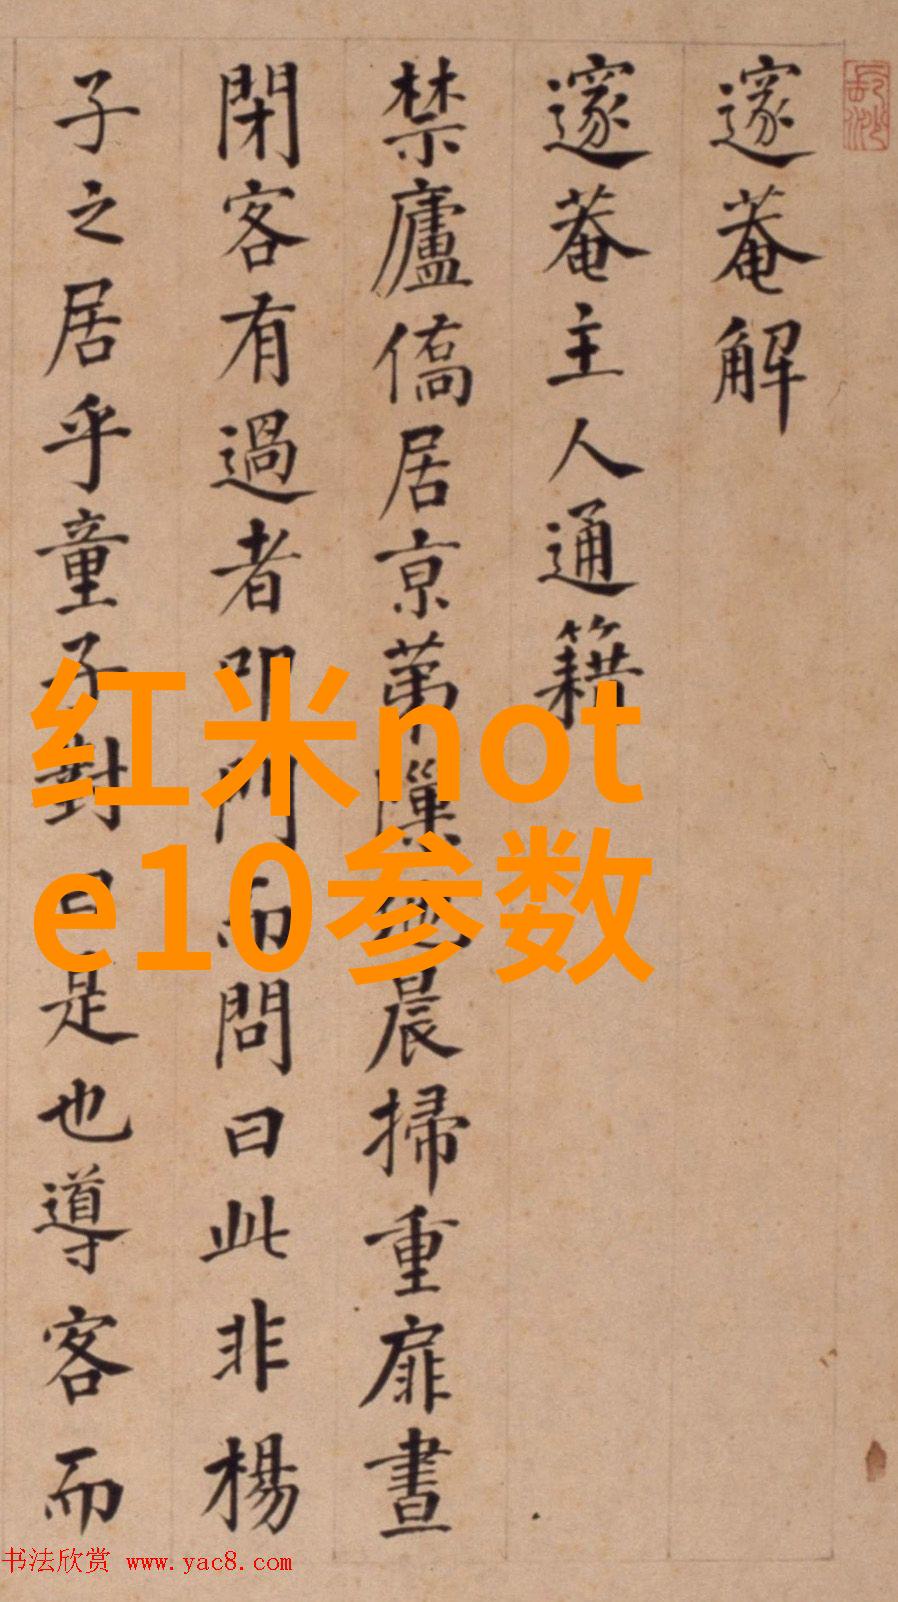 邃菴解
邃菴主人通籍
禁廬僑居京苐
晨掃重扉晝
閉客有過者叩門而問曰此非楊
子之居乎童子對曰是也導客而
红米not
e10参数
书法欣赏 www.yac8.com